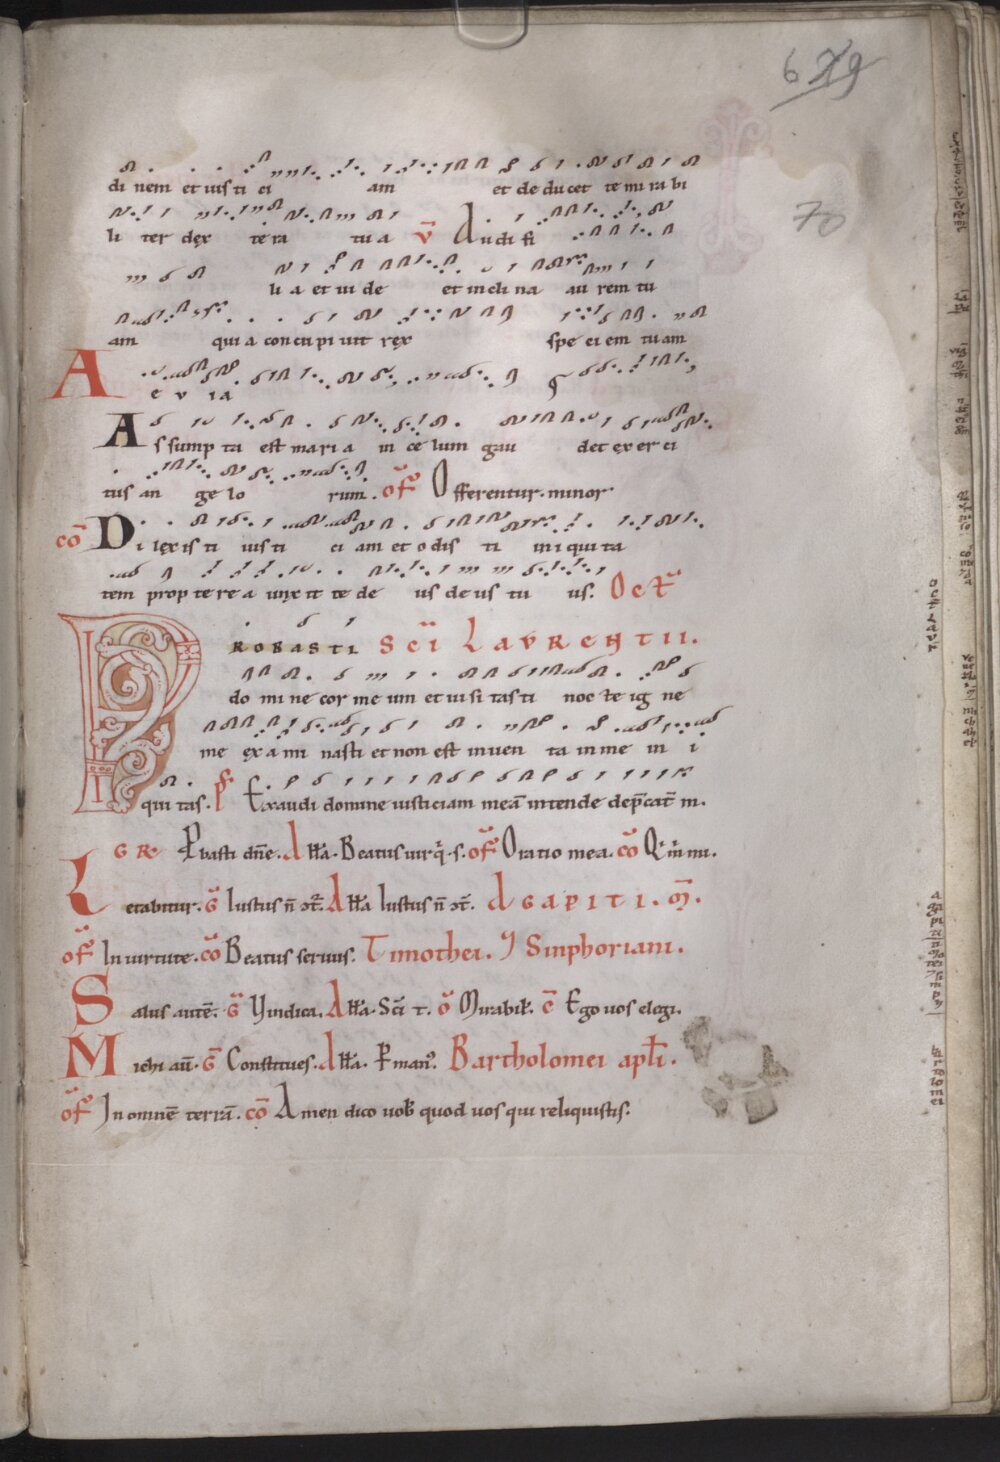 6 79
70
di nem et iusti ci am et deducet te mirabi
li ter dex tera tua v̄ Audi fi
li a et uide et inclina aurem tu
am quia concupiuit rex speciem tuam
A e v ia
Assumpta est maria in celum gaudet exerci
tus angelorum. of̄ Offerentur. minor
cō Dilexisti iusti ciam et odisti iniquita
tem propterea unxit te deus deus tuus. Oct̄
Probasti Sc̄i Laurentii.
domine cor meum et uisitasti nocte igne
me examinasti et non est inuenta in me ini
quitas. ps̄ Exaudi domine iusticiam meā intende dep̄cat̄ m.
GR Pbasti dn̄e. All̄a. Beatus uir q̄. s. of̄ Oratio mea. cō Q̄i m̄ mi.
Letabitur. ḡ Iustus n̄ ɔt̄. All̄a Iustus n̄ ɔt̄. Agapiti. m̄.
of̄ In uirtute. cō Beatus seruus. Timothei. 7 Sinphoriani.
Salus autē. ḡ Vindica. All̄a. Sc̄i t. ō Mirabil̄. c̄ Ego uos elegi.
Michi aū. ḡ Constitues. All̄a. P man⁹. Bartholomei apl̄i.
of̄ In omnē terrā. cō Amen dico uob̄ quod uos qui reliquistis.